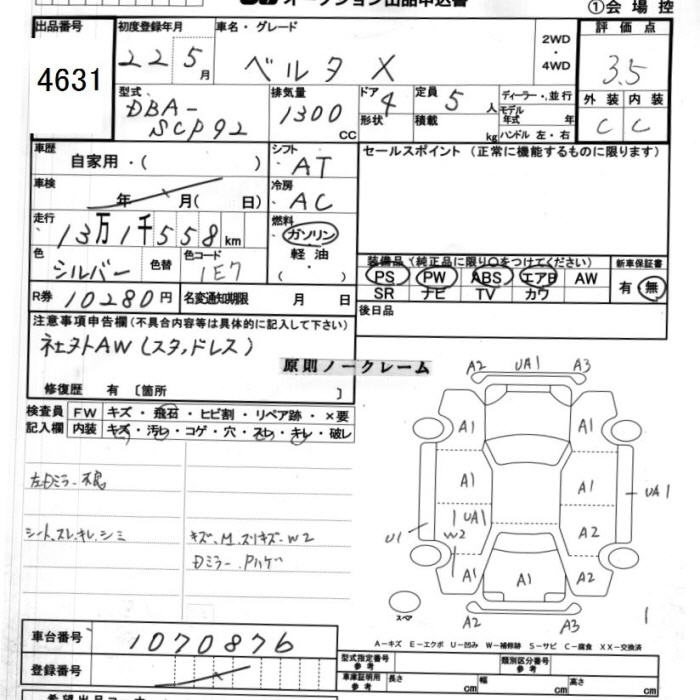 オークション出品申込書
①会場控
出品番号 4631
初度登録年月 22 5月
車名・グレード ベルタ X
2WD・4WD
評価点 3.5
外装 C 内装 C
型式 DBA-SCP92
排気量 1300 CC
ドア 4 形状
定員 5人 積載 kg
ディーラー・並行
モデル年式 年
ハンドル 左・右
車歴 自家用・( )
シフト AT
セールスポイント (正常に機能するものに限ります)
車検 年 月( 日)
冷房 AC
走行 13万1千558km
燃料 ガソリン
軽油
・( )
色 シルバー 色替 色コード 1E7
装備品 (純正品に限り○をつけてください)
新車保証書
PS PW ABS エアB AW
SR ナビ TV カワ
有・無
R券 10280円 名変通知期限 月 日
後日品
注意事項申告欄(不具合内容等は具体的に記入して下さい)
社外AW(スタッドレス)
原則ノークレーム
修復歴 有 〔箇所 〕
検査員記入欄
FW キズ・飛石・ヒビ割・リペア跡・×要
内装 キズ・汚レ・コゲ・穴・スレ・キレ・破レ
左Dミラー不良
シート、スレ、キレ、シミ
キズ、M、スリキズ、W2
Dミラー、Pハゲ
A2 UA1 A3
A1 A1
A1 A1 UA1
UA1 A2
U1 W2
A1 A1 A2
A2 A3
スペア
1
車台番号 1070876
A-キズ E-エクボ U-凹み W-補修跡 S-サビ C-腐食 XX-交換済
登録番号
型式指定番号 参考
類別区分番号 参考
車庫証明用 参考 長さ cm 幅 cm 高さ cm